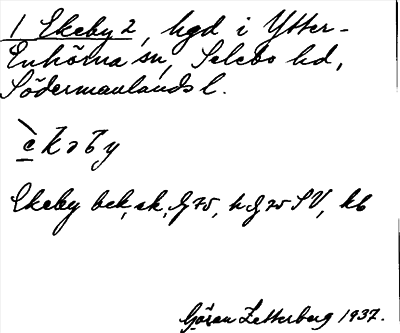 1 Ekeby 2, hgd i Ytter-
Enhörna sn, Selebo hd,
Södermanlands l.
èkəby
Ekeby bek, ek,
Göran Zetterberg 1937.